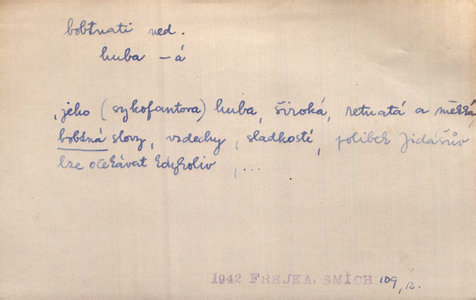 bobtnati ned.
huba -á
, jeho (sykofantova) huba, široká, retnatá a měkká
bobtná slovy, vzdechy, sladkostí, polibek Jidášův
lze očekávat kdykoliv, ...
1942 FREJKA, SMÍCH 109, 12.